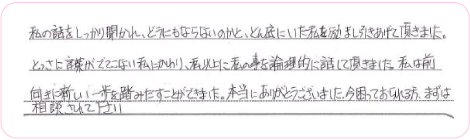 私の話をしっかり聞かれ、どうにもならないのかと、どん底にいた私を励まし引きあげて頂きました。
とっさに言葉がでてこない私にかわり、私以上に私の事を論理的に話して頂きました。私は前
向きに新しい一歩を踏みだすことができました。本当にありがとうございました。今困っておられる方、まずは
相談されて下さい